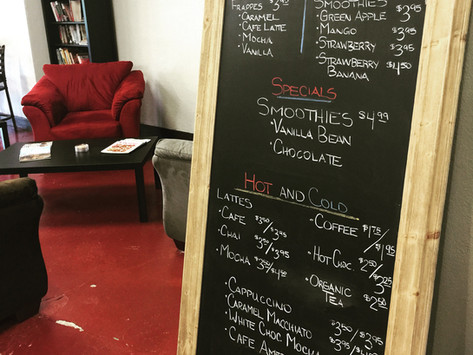 Frappes
• Caramel
• Cafe Latte
• Mocha
• Vanilla
Smoothies
• Green Apple $3.95
• Mango
• Strawberry $3.95
• Strawberry Banana $4.50
Specials
Smoothies $4.99
• Vanilla Bean
• Chocolate
Hot and Cold
Lattes
• Cafe $3.50/$3.95
• Chai $3.50/$3.95
• Mocha
• Coffee $1.75/$1.95
• Hot Choc. $2.50/
• Organic Tea $2.50
• Cappuccino
• Caramel Macchiato $3.50/$3.95
• White Choc Mocha
• Cafe